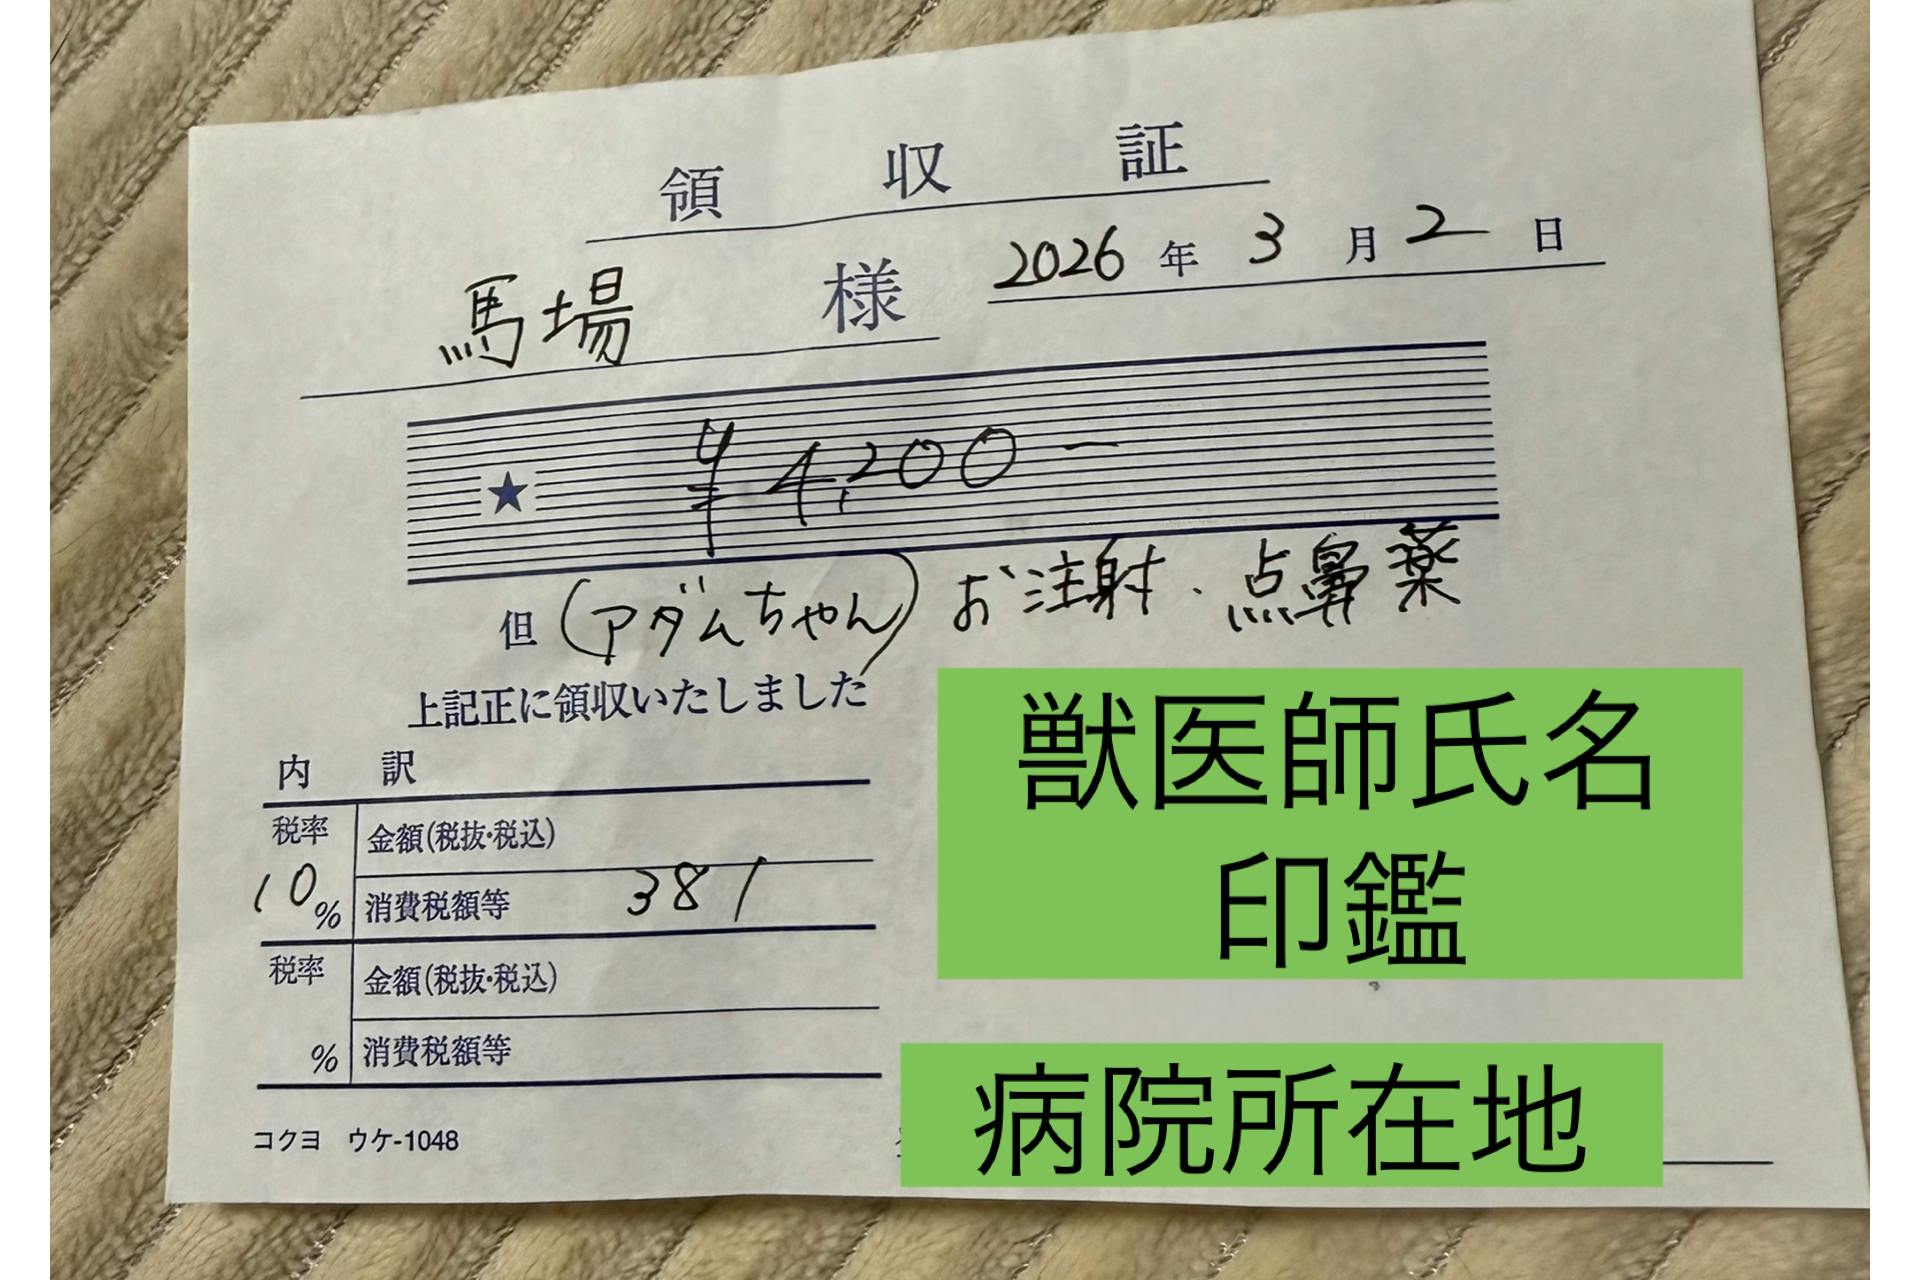 領収証
2026年3月2日
馬場 様
★ ¥4,200-
但(アダムちゃん)お注射・点鼻薬
上記正に領収いたしました
内訳
税率 金額(税抜・税込)
10% 消費税額等 381
税率 金額(税抜・税込)
% 消費税額等
コクヨ ウケ-1048
獣医師氏名
印鑑
病院所在地